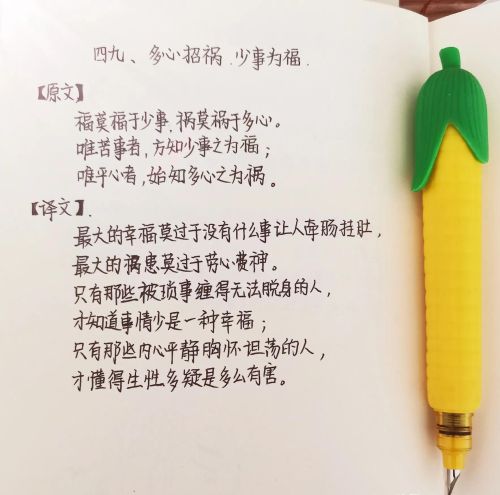 四九、多心招祸.少事为福.
【原文】
福莫福于少事,祸莫祸于多心。
唯苦事者,方知少事之为福;
唯平心者,始知多心之为祸。
【译文】.
最大的幸福莫过于没有什么事让人牵肠挂肚,
最大的祸患莫过于劳心费神。
只有那些被琐事缠得无法脱身的人,
才知道事情少是一种幸福;
只有那些内心平静胸怀坦荡的人,
才懂得生性多疑是多么有害。